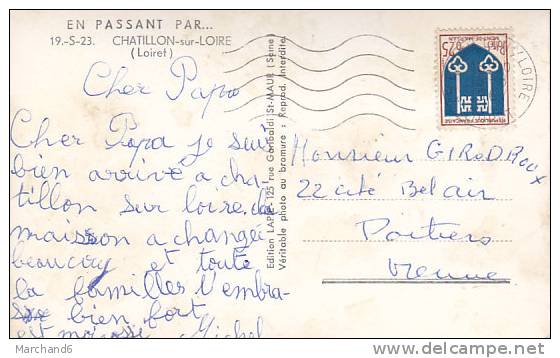 EN PASSANT PAR...
19.-S-23. CHATILLON-sur-LOIRE
(Loiret)
Cher Papa
Cher Papa je suis
bien arrivé a cha-
tillon sur loire. la
maison a changée
beaucoup et toute
la familles t'embra-
sse bien fort
et moi aussi Michel
Edition LAPIE - 125 rue Garibaldi St-MAUR (Seine)
Véritable photo au bromure : Reprod. Interdite
LOIRE
REPUBLIQUE FRANÇAISE
Monsieur GIRODROUX
22 cité Bel air
Poitiers
Vienne
Marchand6
www.delcampe.net